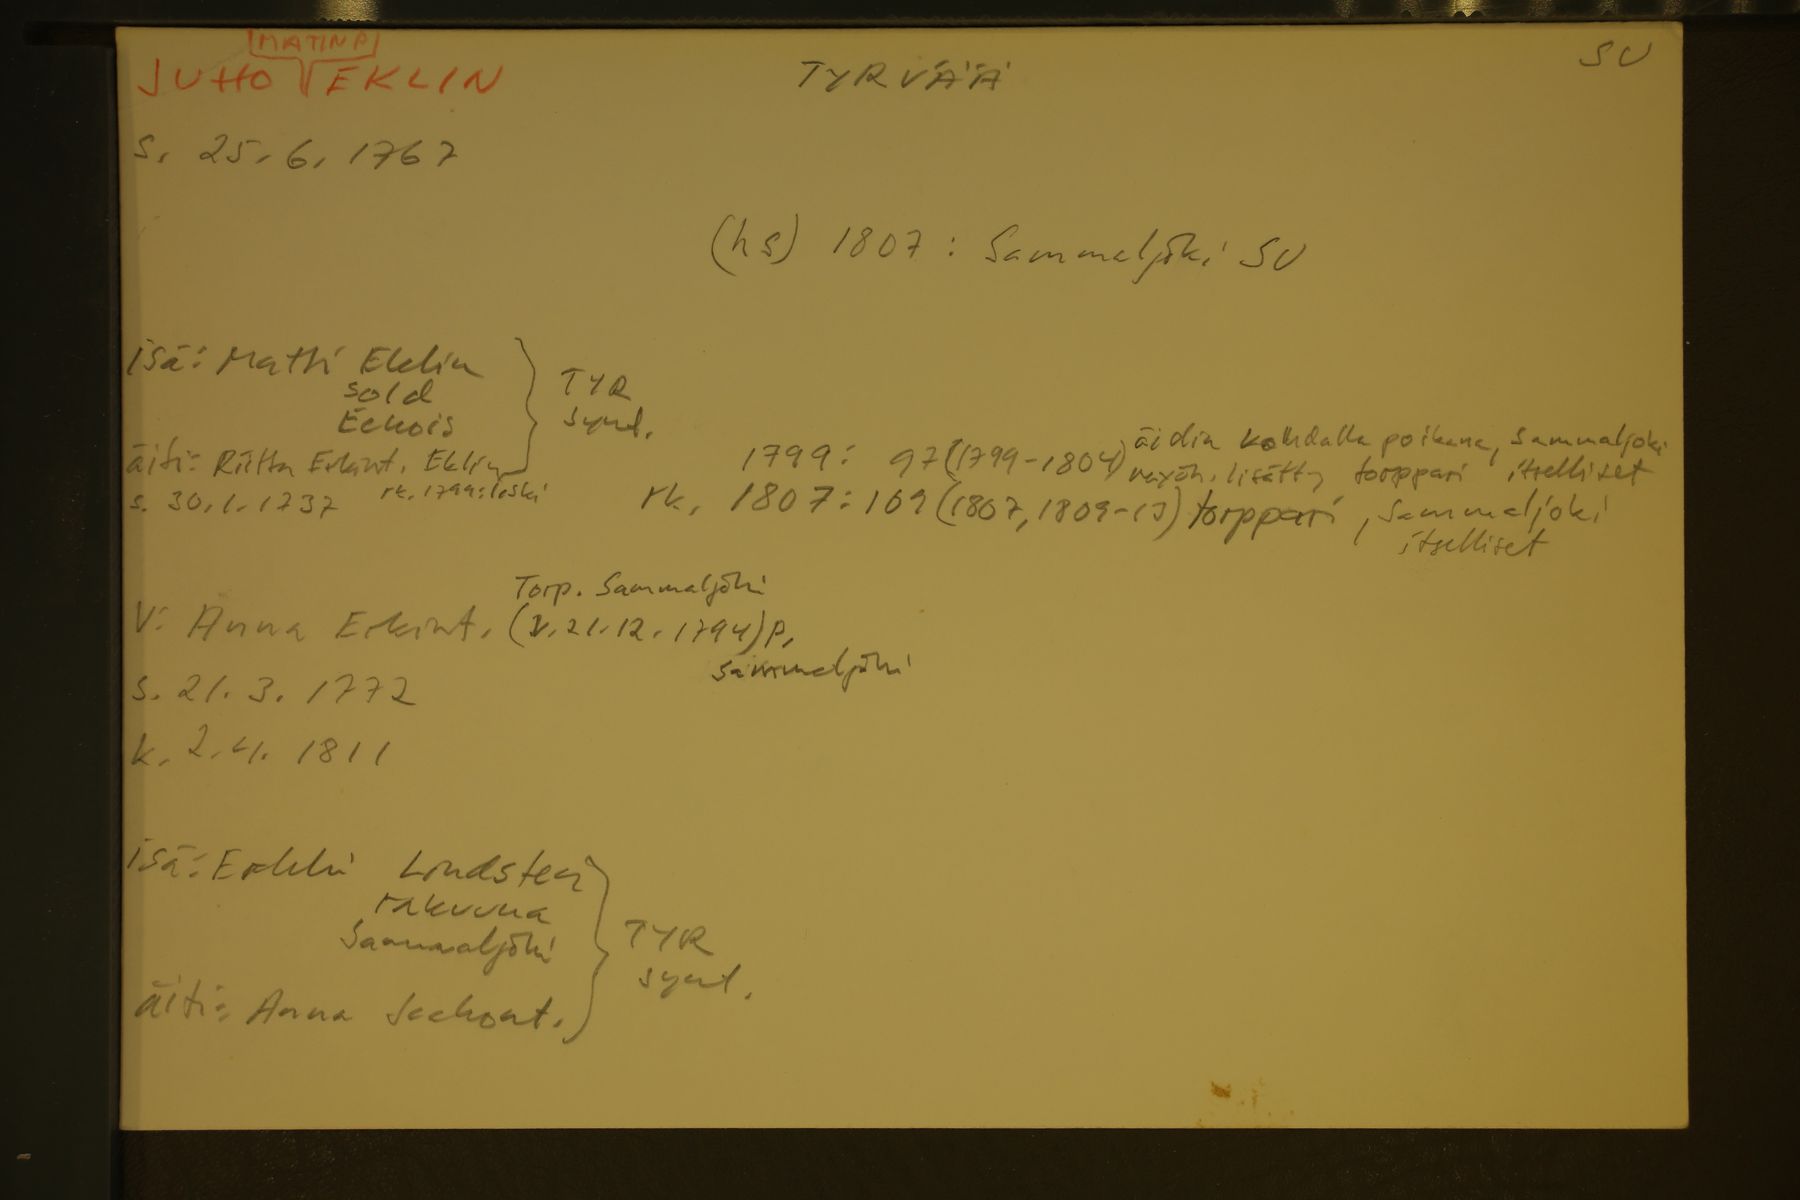 MATINP
JUHO EKLIN TYRVÄÄ SU
s. 25.6.1767
(hs) 1807: Sammaljoki SU
isä: Matti Eklin
sold
TYR
synt.
äiti: Riitta Erkint. Eklin
rk. 1799: leski
s. 30.1.1737
1799: 97 (1799-1804) äidin kohdalla poikana, Sammaljoki
myöh. lisätty torppari itselliset
rk. 1807: 169 (1807, 1809-13) torppari, Sammaljoki
itselliset
Torp. Sammaljoki
V: Anna Erkint. (v. 21.12.1794) p.
Sammaljoki
s. 21.3.1772
k. 2.4.1811
isä: Erkki
rakuuna
Sammaljoki
TYR
synt.
äiti: Anna